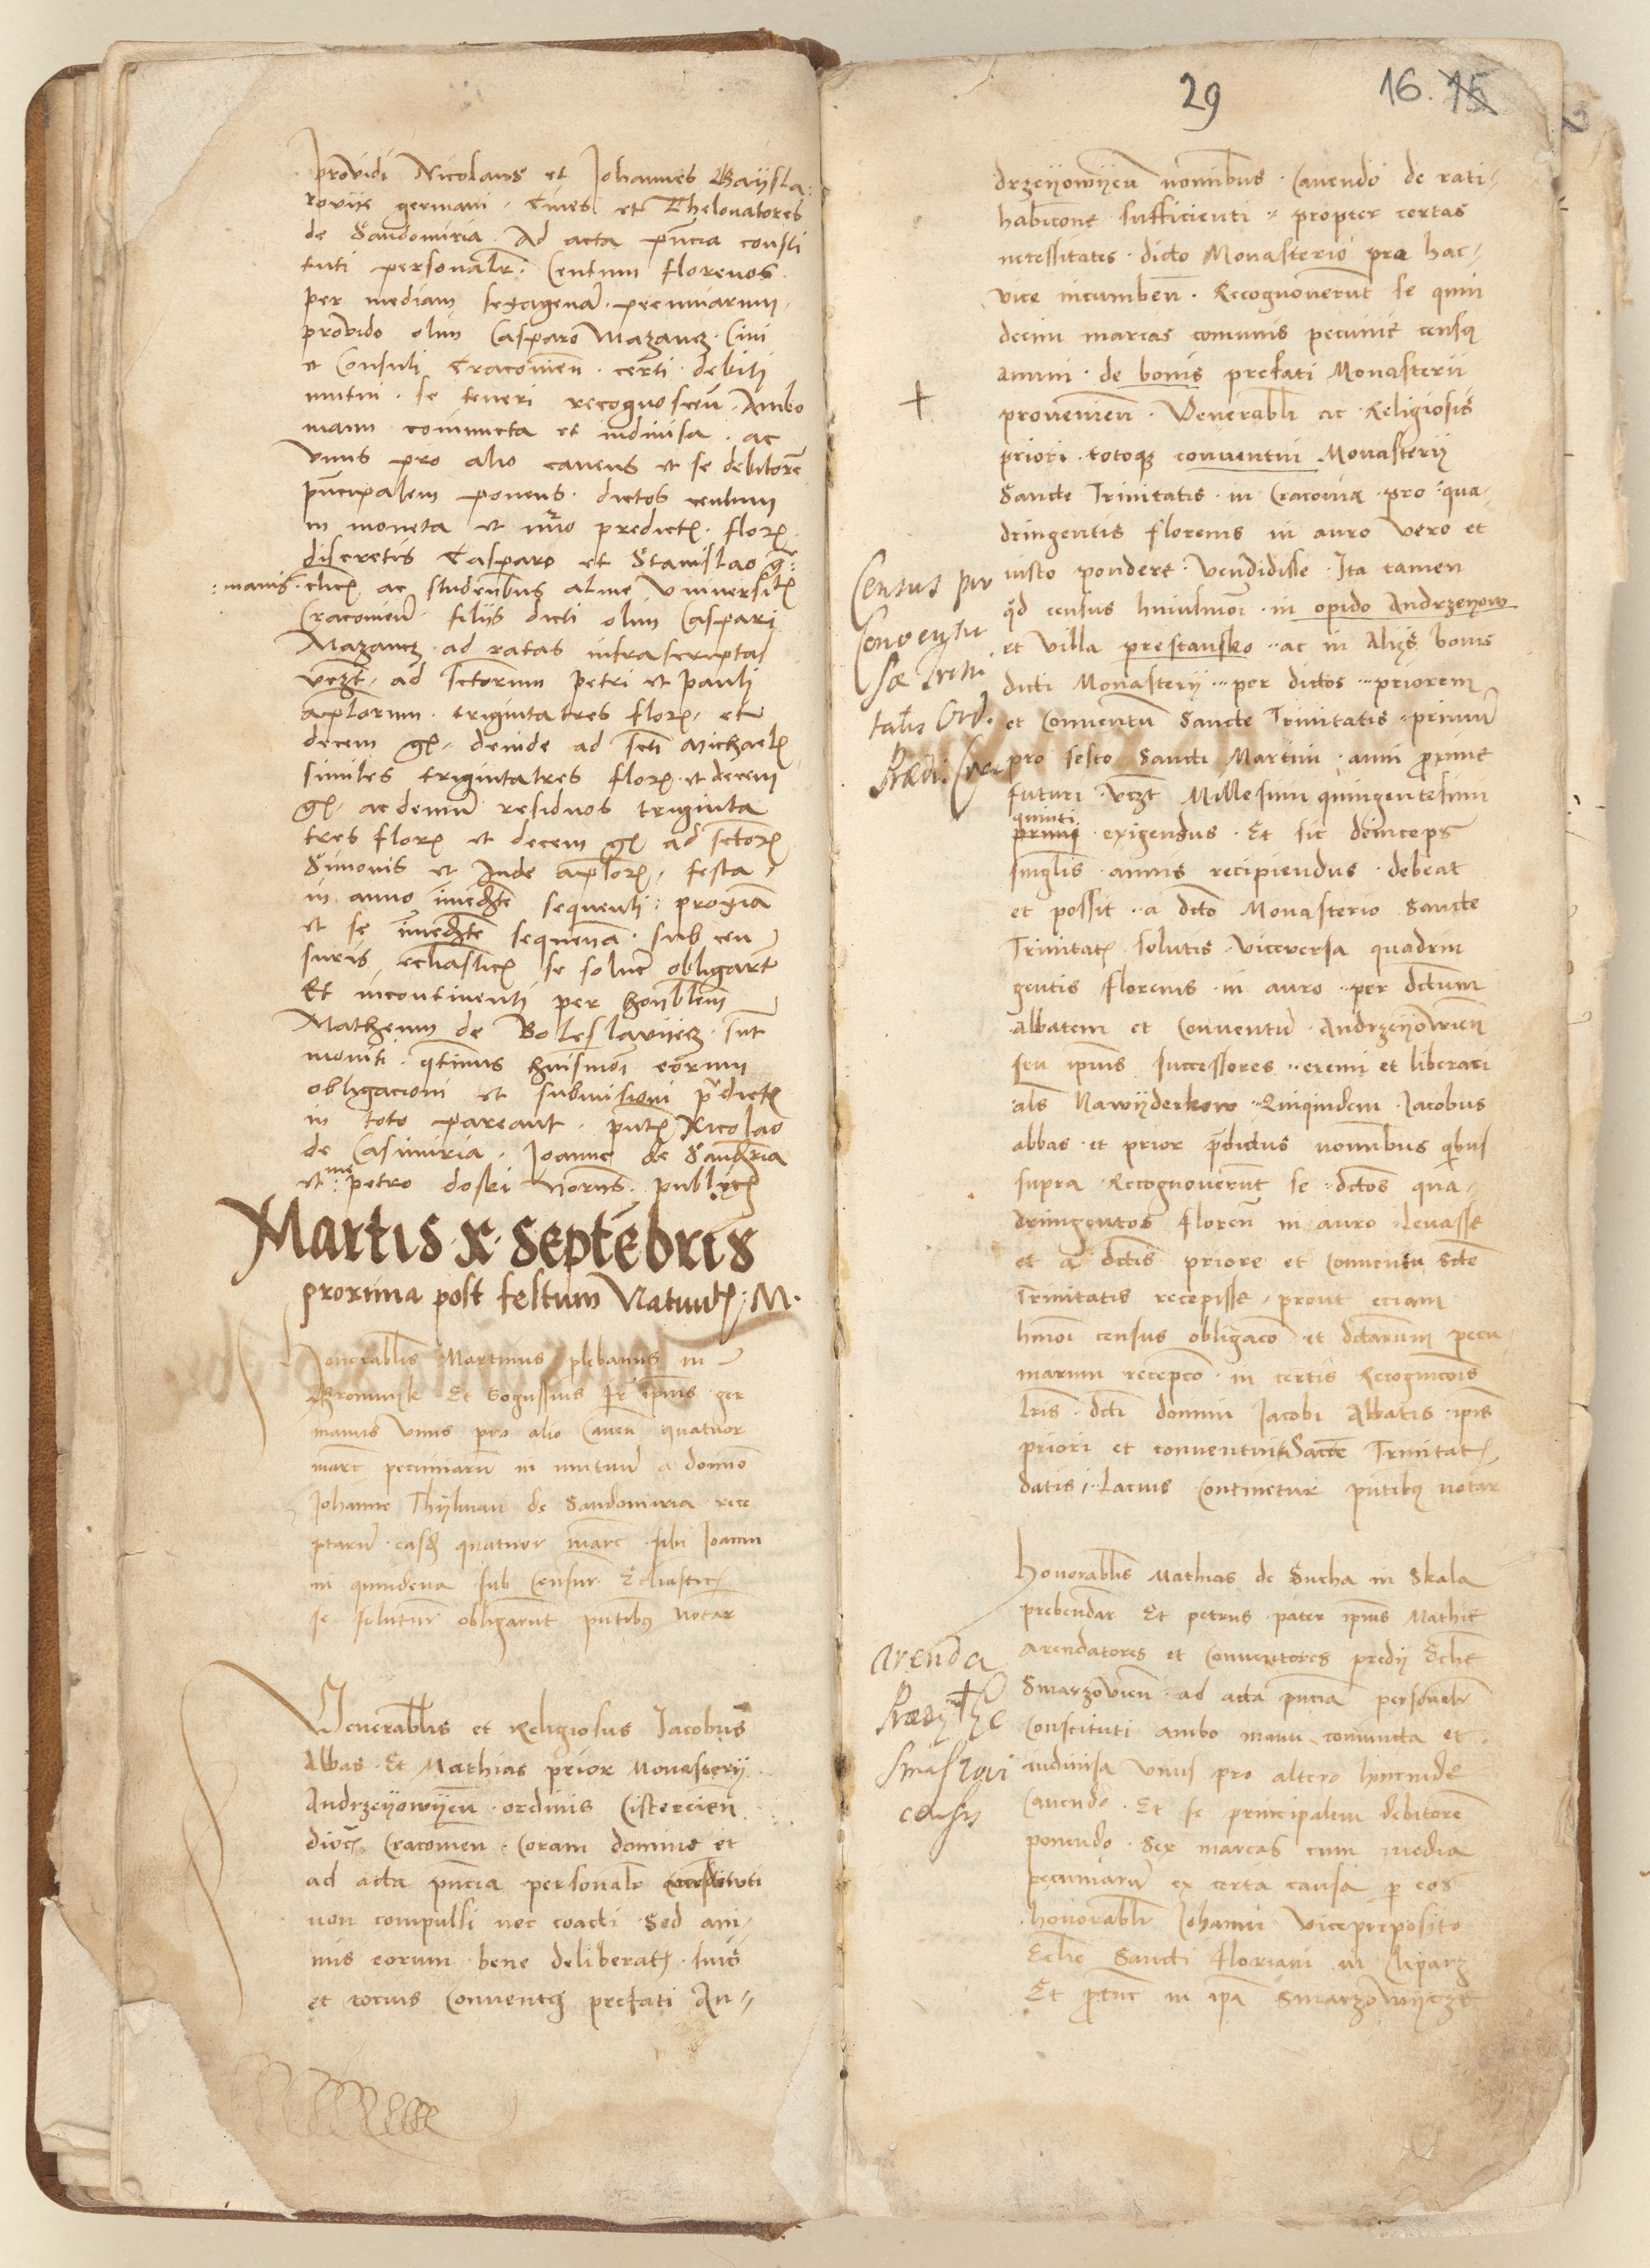 providi Nicolaus et Johannes Gaysla:
rovite germani · Cives et Thelonatores
de Sandomiria · Ad acta pñcia consti
tuti personalr̃ · Centum florenos
per mediam sexagenar̃ · pecuniarum ·
provido olim Casparo Mazancz · Civi
et Consuli Cracovień · certi debiti
mutui · se teneri recognosceñ · Ambo
manu coniuncta et indivisa · ac
Unus pro alio cavens et se debitorẽ
pñcipalem ponens · dictos centum
in moneta et nũo predict · flor
discretis Casparo et Stanislao g̃:
:manis · cleric ac studentibus alme Universit
Cracovień filiis dicti olim Caspari
Mazancz ad ratas infrascriptas
vczt ad sctorum Petri et Pauli
aplorum · triginta tres flor · et
decem g · deinde ad scti Michael
similes triginta tres flor et decem
g · ac demũ residuos triginta
tres flor et decem g ad sctor
Simonis et Jude aplor · festa
in anno imediate sequenti: proxĩa
et se imediate sequeñ · sub cen
suris ecliastic se solver obligar̃t
Et incontinenti per honblem
Matheum de Boleslaviecz · sunt
moniti · qtinus huiusmõi eorum
obligacioni et submissioni predict
in toto pareant · pñt Nicolao
de Casimiria · Joanne de Sandria
et me petro doski norns · public
Martis · x · Septẽbris
proxima post festum Natiuit : M ·
Honorablis Martinus plebanus in
Et Bogussius fr̃ ipius ger
manus Unus pro alio Caveñ quatuor
marc pecuniarũ in mutuũ a domino
Johanne Thylman de Sandomiria rece
ptarũ · easd quatuor marc sibi Joanni
in quindena sub Censur Ecliastic
se soluturũ obligarũt pñtibus Notar
Venerablis et Religiosus Jacobus
Abbas · Et Mathias prior Monastery
Andrzeyowyeñ · ordinis Cistercień
dioc Cracovień · Coram domino et
ad acta pñcia personalr constituti
non compulsi nec coacti Sed ani
mis eorum bene deliberat · suis
et tocius Conventq prefati An
29
16. 15
drzeyowyeñ nominibus · Cavendo de rati
habicone sufficienti · propter certas
necessitates · dicto Monasterio pro hac
vice incumbeñ · Recognoverũt se quin
decim marcas comunis pecunie censq
annui · de bonis prefati Monasterii
+
provenieñ · Venerabli ac Religiosis
priori · totoq conventui Monastery
Sancte Trinitatis · in Cracovia · pro qua
dringentis florenis in auro vero et
iusto pondere · Vendidisse · Ita tamen
qd census huiusmõi · in opido Andrzeyow
et villa prestansko · ac in Alijs bonis
dicti Monastery · per dictos · priorem
et Conventũ Sancte Trinitatis · primũ
pro festo Sancti Martini · anni proxime
futuri · vczt Millesimi quingentesimi
quinti
primi · exigendus · Et sic deinceps
singlis annis recipiendus · debeat
et possit · a dcto Monasterio Sancte
Trinitat · solutis · viceversa quadrin
gentis florenis in auro · per dctum
abbatem et Conventũ · Andrzeyowień
seu ipius successores · exemi et liberari
als Nawyderkow · Quiquidem Jacobus
abbas · et prior p̃dictus nominibus quibus
supra · Recognoverũt se · dctos qua
dringentos floreñ in auro · levasse
et a dctis priore et Conventu Scte
Trinitatis recepisse · prout eciam
hmõi census obligaco et dctarum pecu
niarum recepco · in certis Recognicois
lris · dcti domini Jacobi Abbatis · ipis
priori et conventui Sancte Trinitat
datis · Lacius Continetur pñtibus notar
Census pro
Conventu
Sæ Trini
tatis Ord.
Prædi:
Honorablis Mathias de Sucha in Skala
prebendar · Et petrus pater ipius Mathie
arendatores et Conventores predy Eclie
Smarzovień · ad acta pñcia personalr
Constituti ambo manu coniuncta et
indivisa Unus pro altero hincinde
Cavendo · Et se principalem debitorẽ
ponendo · Sex marcas cum media
pecuniarũ ex certa causa p eos
honorabli Johanni Viceproposito
Eclie Sancti Floriani in Cleparz
Et in ipa Smarzowycze
arenda
Prædy
Smarzovi
censis